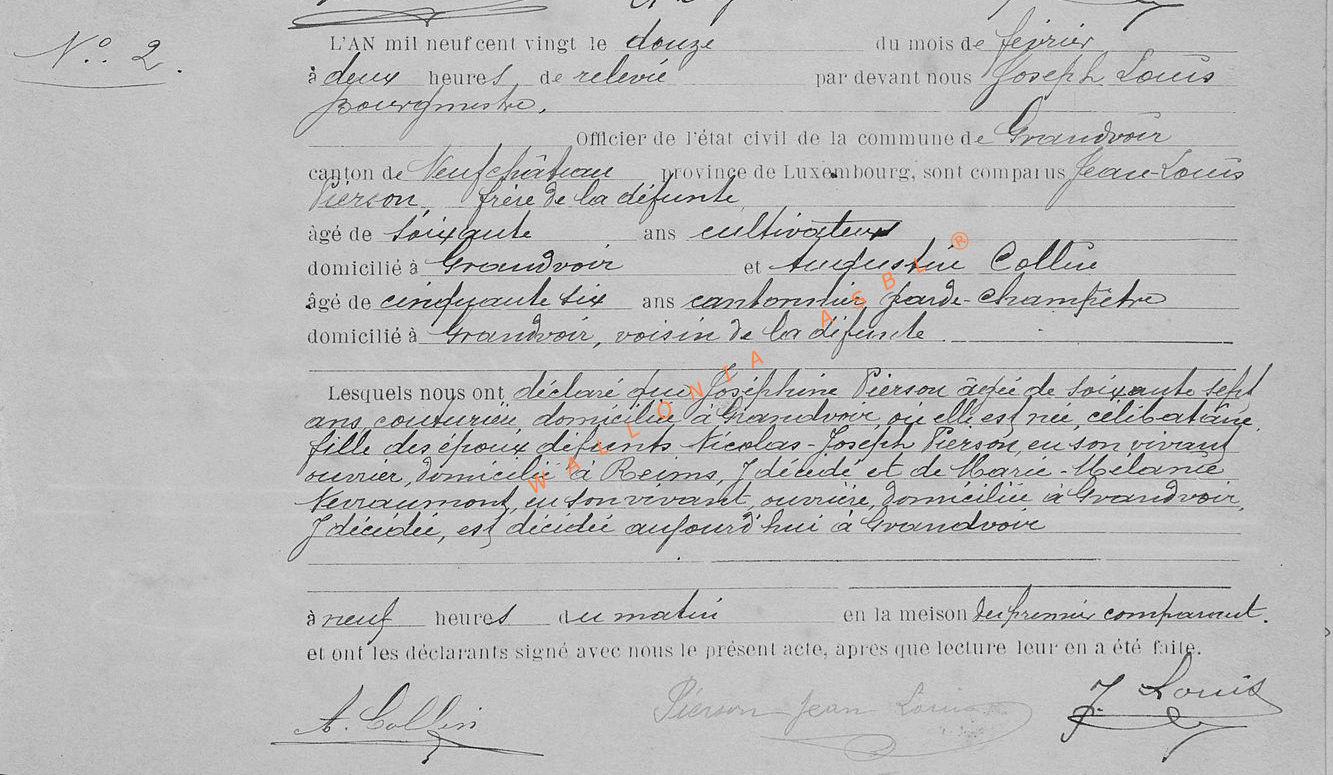 N° 2.
L'AN mil neuf cent vingt le douze du mois de février
à deux heures de relevée par devant nous Joseph Louis
bourgmestre,
Officier de l'état civil de la commune de Grandvoir
canton de Neufchâteau province de Luxembourg, sont comparus Jean-Louis
Pierson, frère de la défunte,
âgé de soixante ans cultivateur
domicilié à Grandvoir et Augustin Collin
âgé de cinquante six ans cantonnier garde-champêtre
domicilié à Grandvoir, voisin de la défunte
Lesquels nous ont déclaré que Joséphine Pierson âgée de soixante sept
ans, couturière, domiciliée à Grandvoir, où elle est née, célibataire,
fille des époux défunts Nicolas-Joseph Pierson, en son vivant
ouvrier, domicilié à Reims, y décédé et de Marie-Mélanie
Nevraumont, en son vivant, ouvrière, domiciliée à Grandvoir,
y décédée, est décédée aujourd'hui à Grandvoir
à neuf heures du matin en la meison du premier comparant.
et ont les déclarants signé avec nous le présent acte, après que lecture leur en a été faite.
A. Collin Pierson Jean Louis J. Louis
WALLONIA ASBL ®